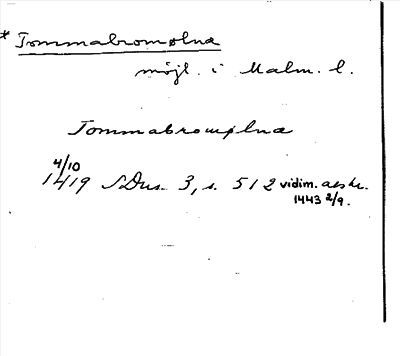 * Tommabromølna
möjl. i Malm. l.
Tommabromølna
4/10
1419 SDns. 3, s. 512 vidim. avskr.
1443 2/9.